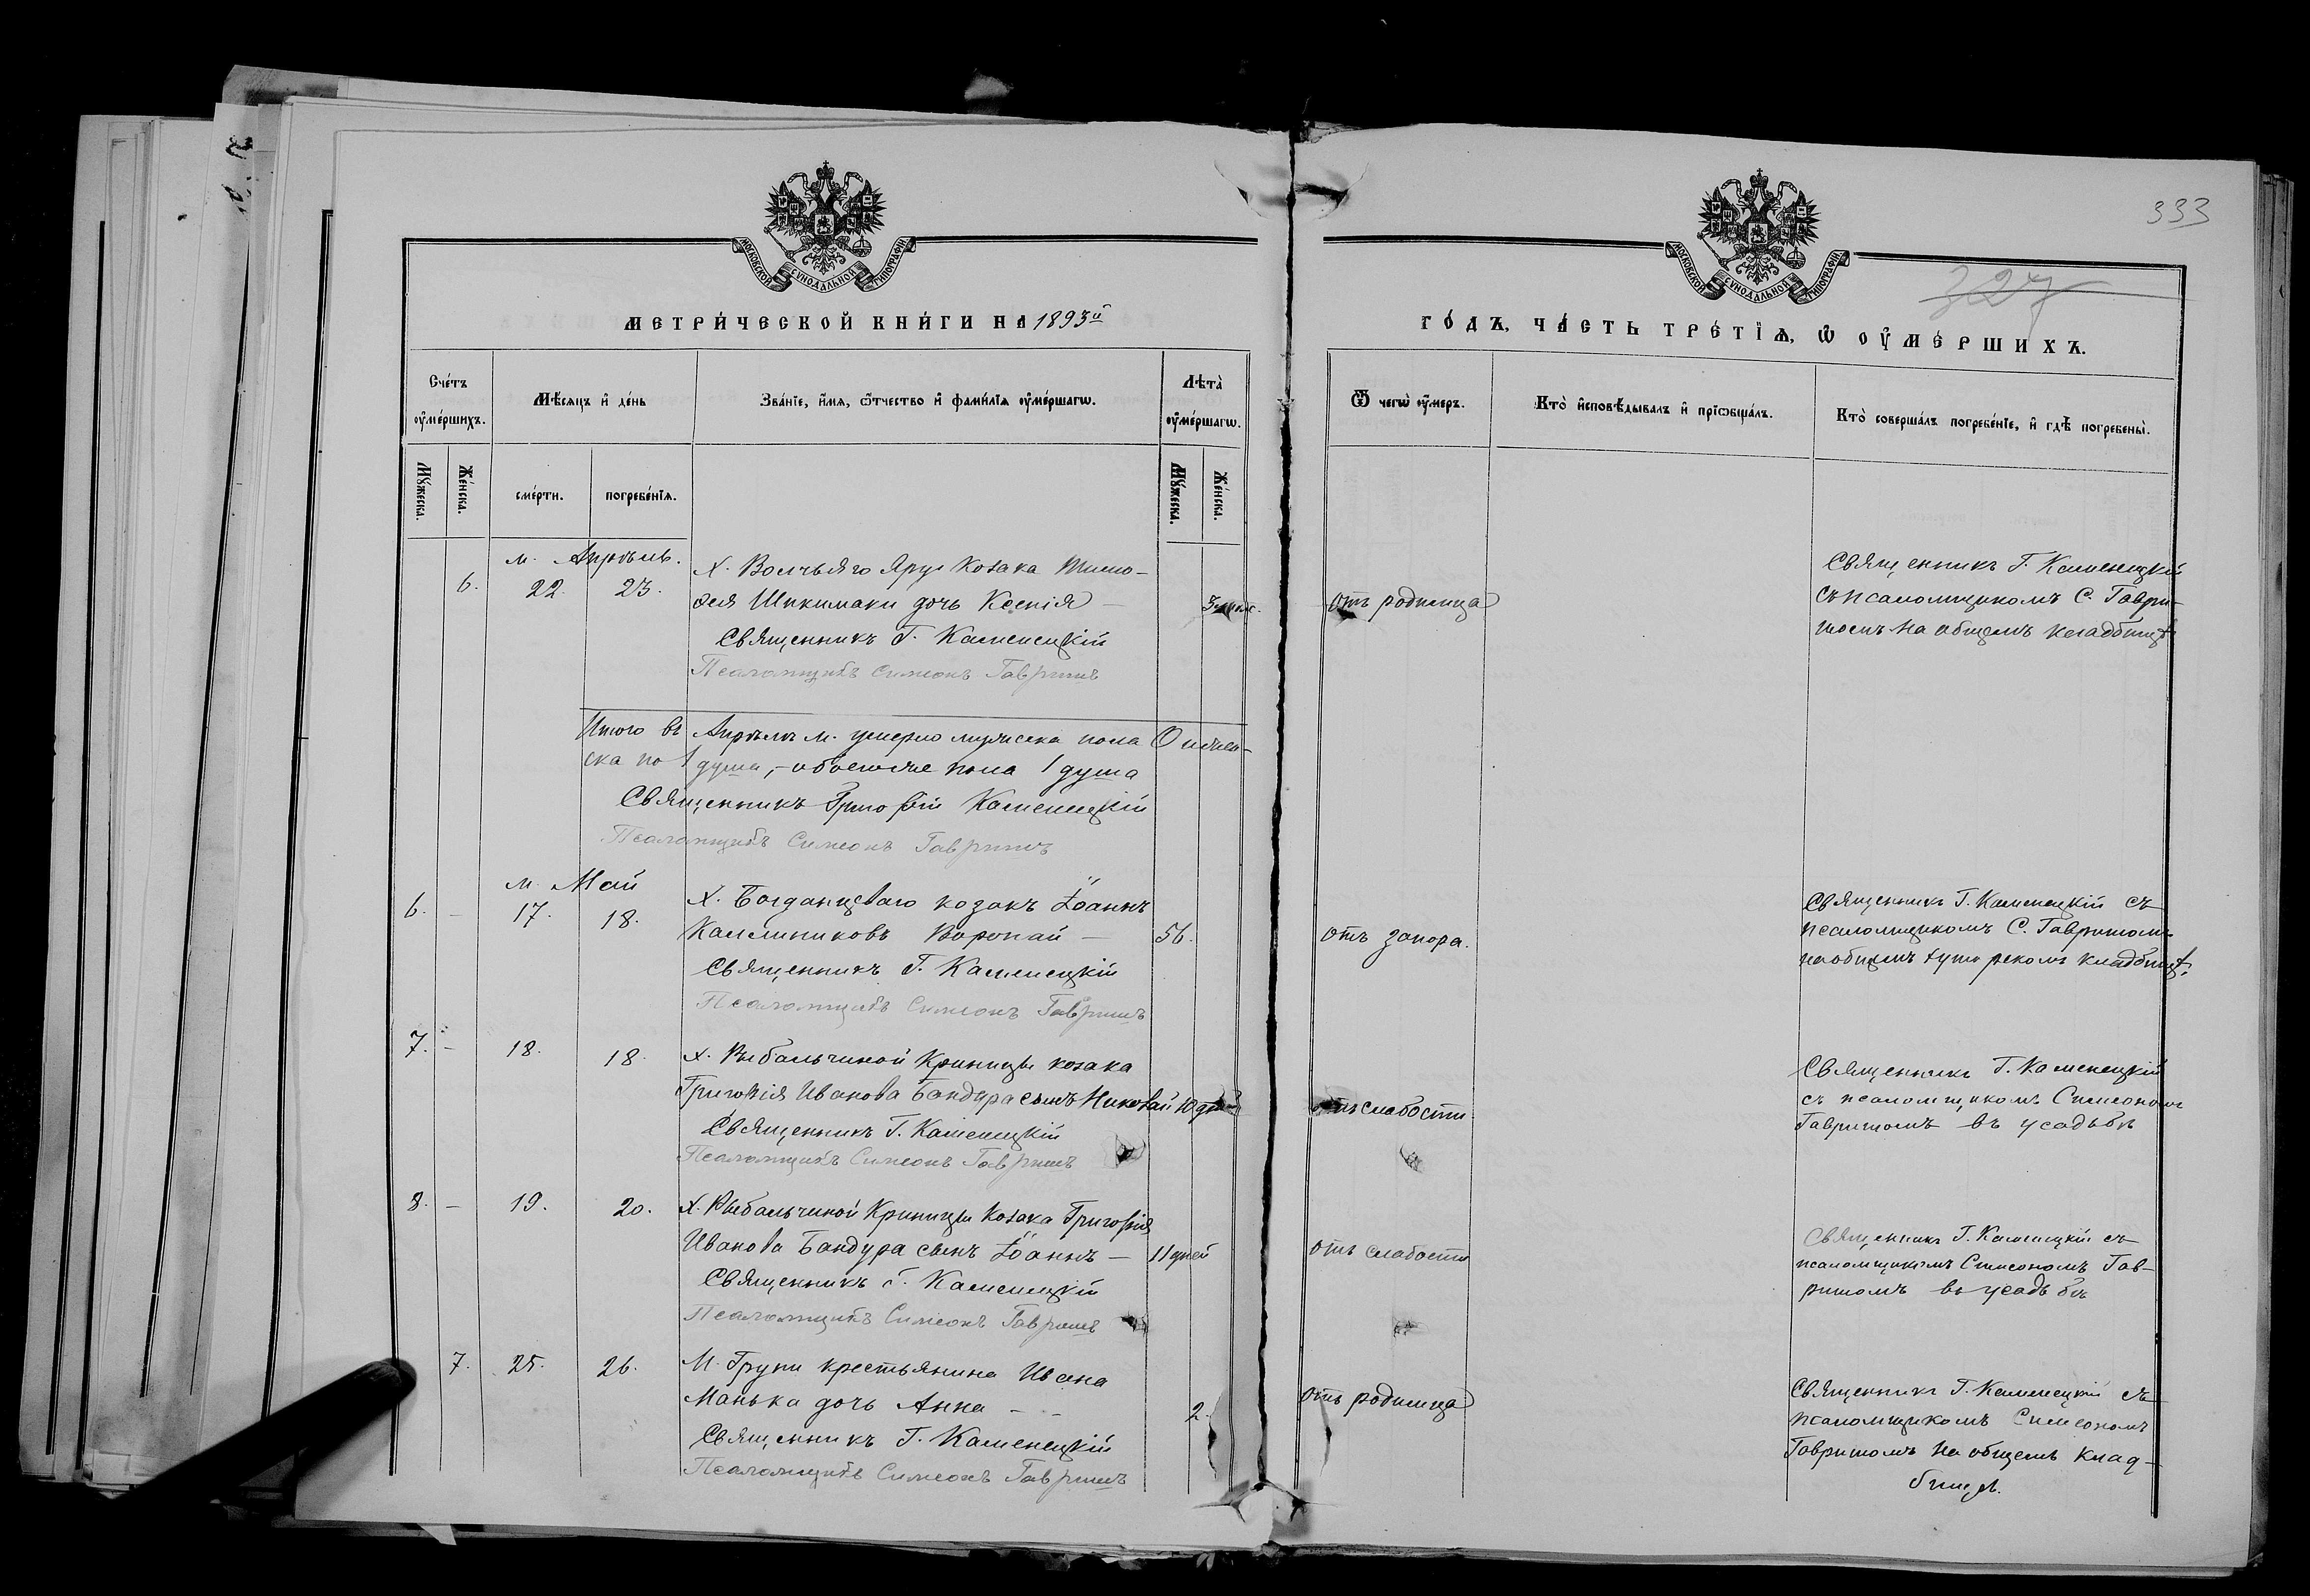 333
327
МОСКОВСКОЙ СѴНОДАЛЬНОЙ ТИПОГРАФІИ
МОСКОВСКОЙ СѴНОДАЛЬНОЙ ТИПОГРАФІИ
МЕТРИ́ЧЕСКОЙ КНИ́ГИ НА 1893й
ГО́ДЪ, ЧА́СТЬ ТРЕ́ТІѦ, Ѡ҆ ОУ҆МЕ́РШИХЪ.
Сче́тъ оу҆ме́ршихъ.
Мѣ́сяцъ и҆ де́нь
Зва́ніе, и҆́мя, ѻ҆́тчество и҆ фами́лія оу҆ме́ршагѡ.
Лѣта̀ оу҆ме́ршагѡ.
Ѿ чегѡ̀ оу҆́меръ.
Кто̀ и҆сповѣ́дывалъ и҆ прїѡбща́лъ.
Кто̀ соверша́лъ погребе́ніе, и҆ гдѣ̀ погребены̀.
Мꙋ́жеска.
Же́нска.
сме́рти.
погребе́нїя.
Мꙋ́жеска.
Же́нска.
м. Апрѣль.
6. 22. 23.
Х. Волчьяго Яру козака Тимо-
фея Шикимаки дочь Ксенія —
Священникъ Г. Каменецкій
Псаломщикъ Симеонъ Гавришъ
отъ родимца
Священникъ Г. Каменецкій
съ псаломщикомъ С. Гаври-
шомъ на общемъ кладбищѣ
Итого въ Апрѣлѣ м. умерло мужеска пола 0 и жен-
ска по 1 душа, – обоего пола 1 душа
Священникъ Григорій Каменецкій
Псаломщикъ Симеонъ Гавришъ
м. Май
6. — 17. 18.
Х. козакъ Іоаннъ
Каллиниковъ Воропай — 56.
Священникъ Г. Каменецкій
Псаломщикъ Симеонъ Гавришъ
отъ запора.
Священникъ Г. Каменецкій съ
псаломщикомъ С. Гавришомъ
на общемъ хуторскомъ кладбищѣ.
7. — 18. 18.
х. Рыбальчиной Криницы козака
Григорія Иванова Бандура сынъ Николай 10 дней
Священникъ Г. Каменецкій
Псаломщикъ Симеонъ Гавришъ
отъ слабости.
Священникъ Г. Каменецкій
съ псаломщикомъ Симеономъ
Гавришомъ въ усадьбѣ
8. — 19. 20.
х. Рыбальчиной Криницы козака Григорія
Иванова Бандура сынъ Іоаннъ — 11 дней
Священникъ Г. Каменецкій
Псаломщикъ Симеонъ Гавришъ
отъ слабости
Священникъ Г. Каменецкій съ
псаломщикомъ Симеономъ Гав-
ришомъ въ усадьбѣ
7. 25. 26.
М. Груни крестьянина Ивана
Манька дочь Анна — - 2.
Священникъ Г. Каменецкій
Псаломщикъ Симеонъ Гавришъ
отъ родимца
Священникъ Г. Каменецкій съ
псаломщикомъ Симеономъ
Гавришомъ на общемъ клад-
бищѣ.